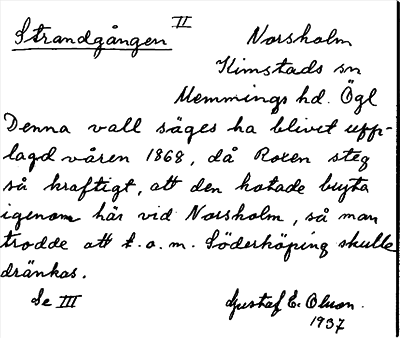 Strandgången II
Norsholm
Kimstads sn
Memmings hd. Ögl
Denna vall säges ha blivit upp-
lagd våren 1868, då Roxen steg
så kraftigt, att den hotade bryta
igenom här vid Norsholm, så man
trodde att t.o.m. Söderköping skulle
dränkas.
Se III
Gustaf E. Olsson.
1937